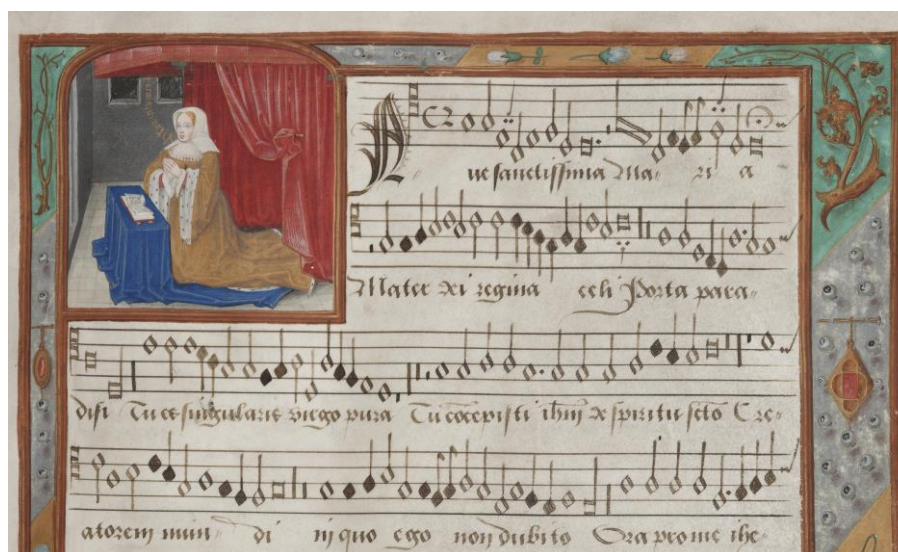 Ave sanctissima Ma- ri a
Mater dei regina celi Porta para-
disi Tu es singularis virgo pura Tu cōcepisti ihm̄ de spiritu scto Cre-
atorem mun- di in quo ego non dubito Ora pro me ihe